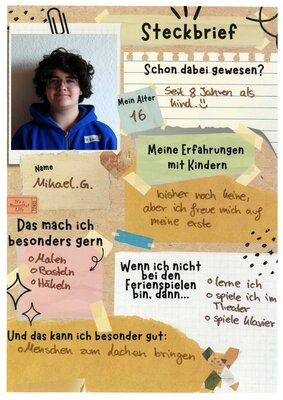 Steckbrief
Schon dabei gewesen?
Seit 8 Jahren als
Kind.
Mein Alter
16
Meine Erfahrungen
mit Kindern
bisher noch keine,
aber ich freue mich auf
meine erste
Name
Mikael.G.
Das mach ich
besonders gern
Malen
Basteln
Häkeln
Wenn ich nicht
bei den
Ferienspielen
bin, dann...
lerne ich
spiele ich im
Theater
spiele Klavier
Und das kann ich besonder gut:
Menschen zum Lachen bringen